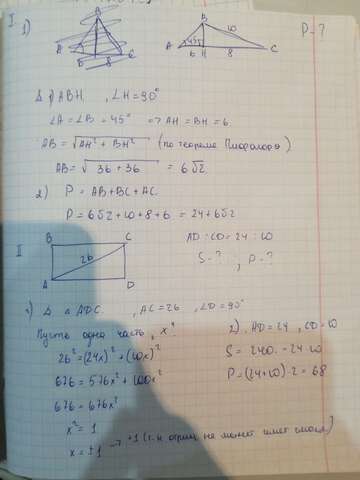 I
1)
B
A
C
6
8
B
45°
10
A
6
H
8
C
P - ?
Δ ABH , ∠H = 90°
∠A = ∠B = 45° => AH = BH = 6
AB = √AH² + BH² (по теореме Пифагора)
AB = √36 + 36 = 6√2
2) P = AB + BC + AC
P = 6√2 + 10 + 8 + 6 = 24 + 6√2
II
B
C
26
A
D
AD : CD = 24 : 10
S - ? , P - ?
1) Δ ADC , AC = 26 , ∠D = 90°
Пусть одна часть , x
26² = (24x)² + (10x)²
676 = 576x² + 100x²
676 = 676x²
x² = 1
x = ±1 → +1 (т.к отриц не может имет смысл)
2) AD = 24 , CD = 10
S = 240 = 24 · 10
P = (24 + 10) · 2 = 68